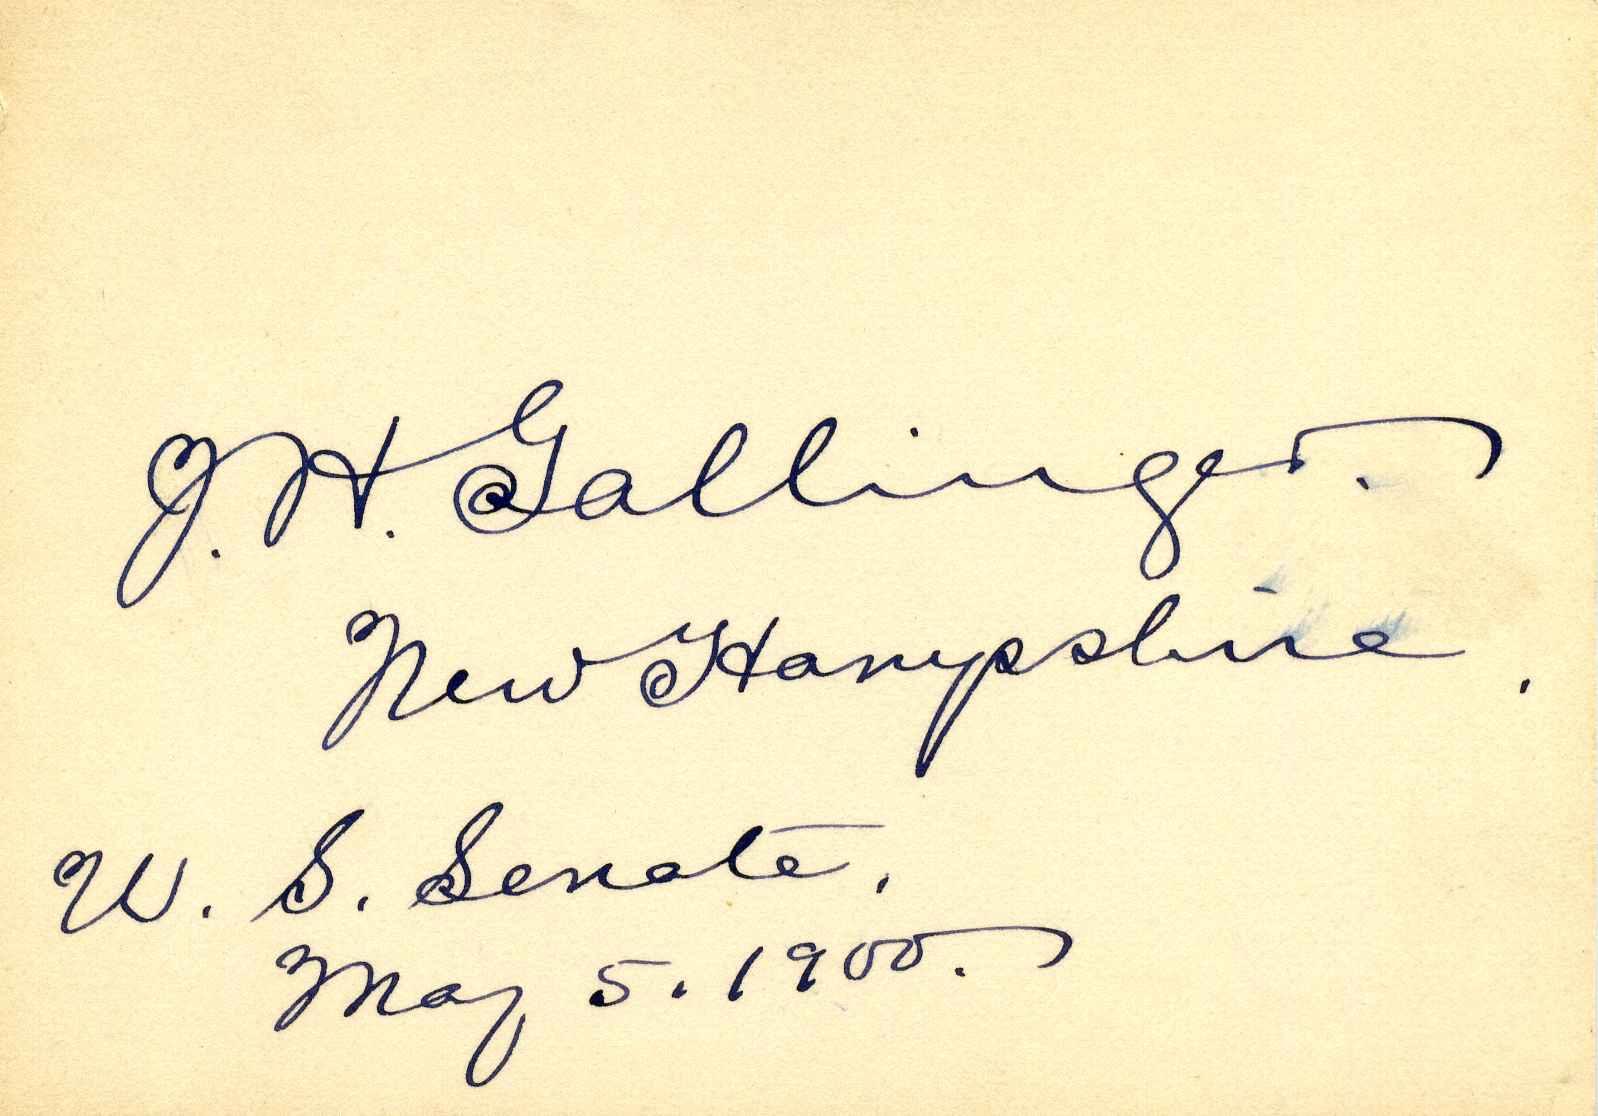 J. H. Gallinger.
New Hampshire.
U. S. Senate,
May 5. 1900.